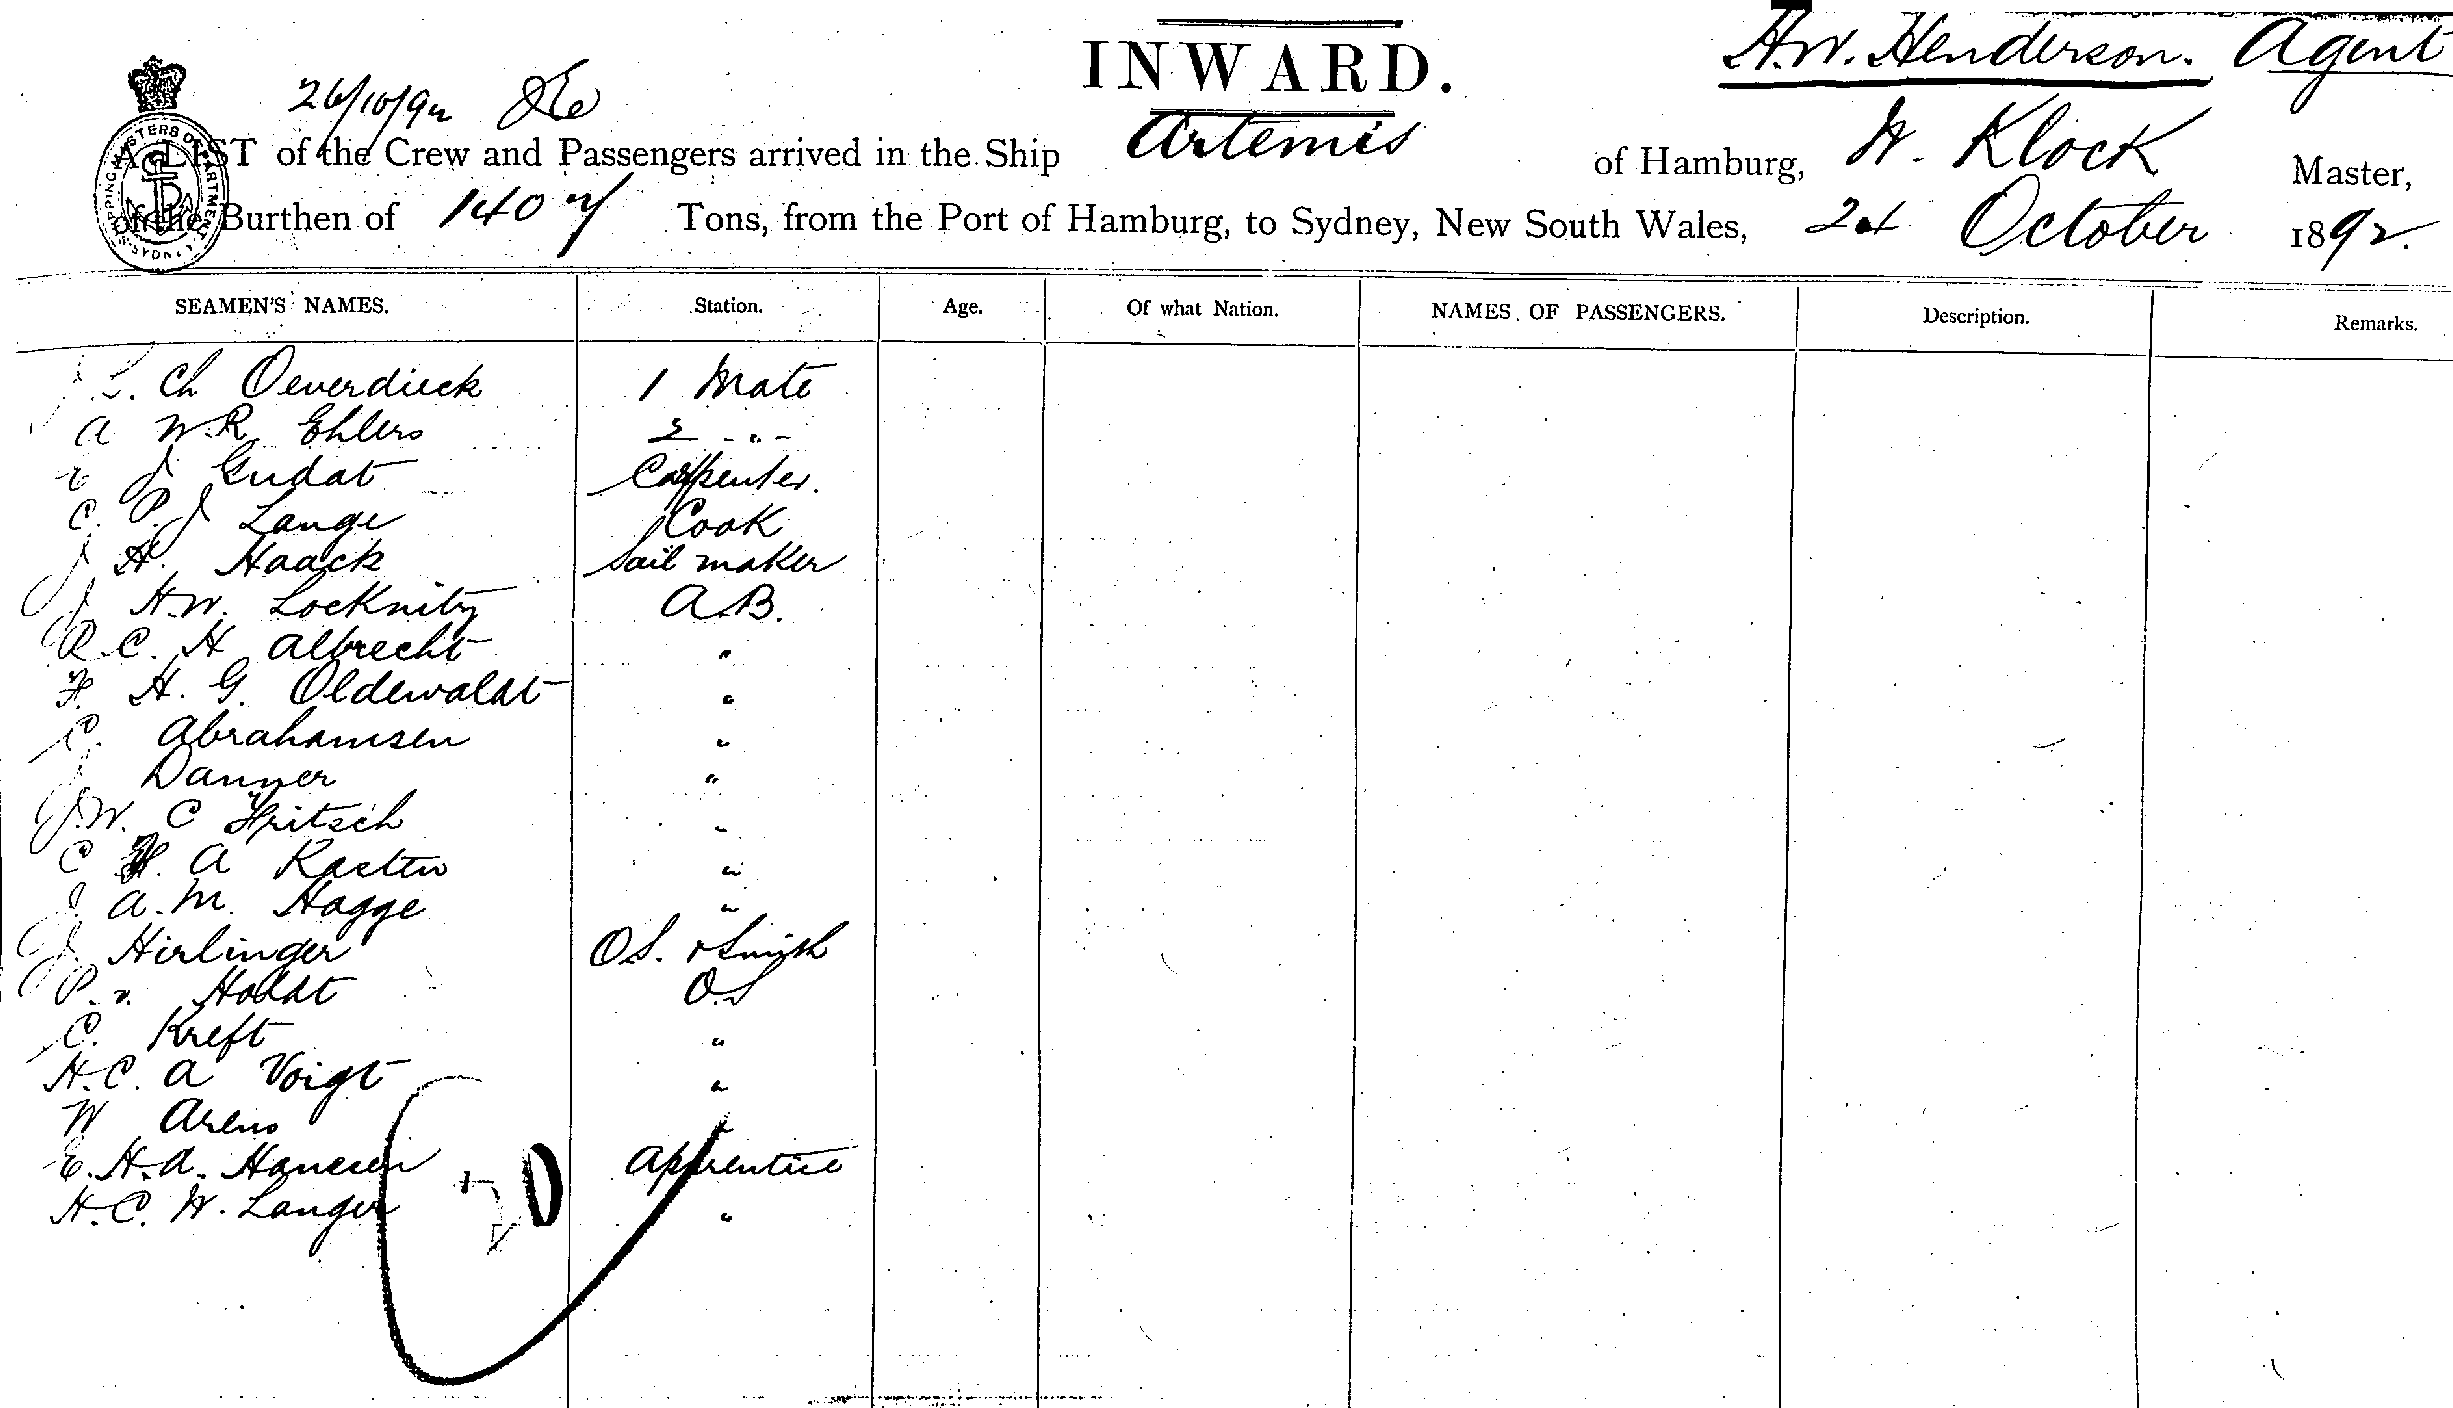 INWARD.
H.W. Henderson. Agent
26/10/92
A LIST of the Crew and Passengers arrived in the Ship Artemis of Hamburg, W. Klock Master,
of the Burthen of 1407 Tons, from the Port of Hamburg, to Sydney, New South Wales, 24 October 1892.
SEAMEN'S NAMES. Station. Age. Of what Nation. NAMES OF PASSENGERS. Description. Remarks.
Ch Oeverdieck 1 Mate
A W.R. Ehlers 2 - " -
E J Gudat Carpenter.
C. P. J Lange Cook
J H. Haack Sail maker
J H.W. Locknitz A.B.
R. C. H Albrecht "
F. H. G. Oldewaldt "
C. Abrahamsen "
J Danner "
J.W. C Fritsch "
C H. A Karsten "
J A. M. Hagge "
J Hirlinger O S. & Smith
P. v. Holdt O.S
C. Kreft "
H. C. A Voigt "
W Arens "
E. H. A. Hansen Apprentice
H. C. W. Langer "
20